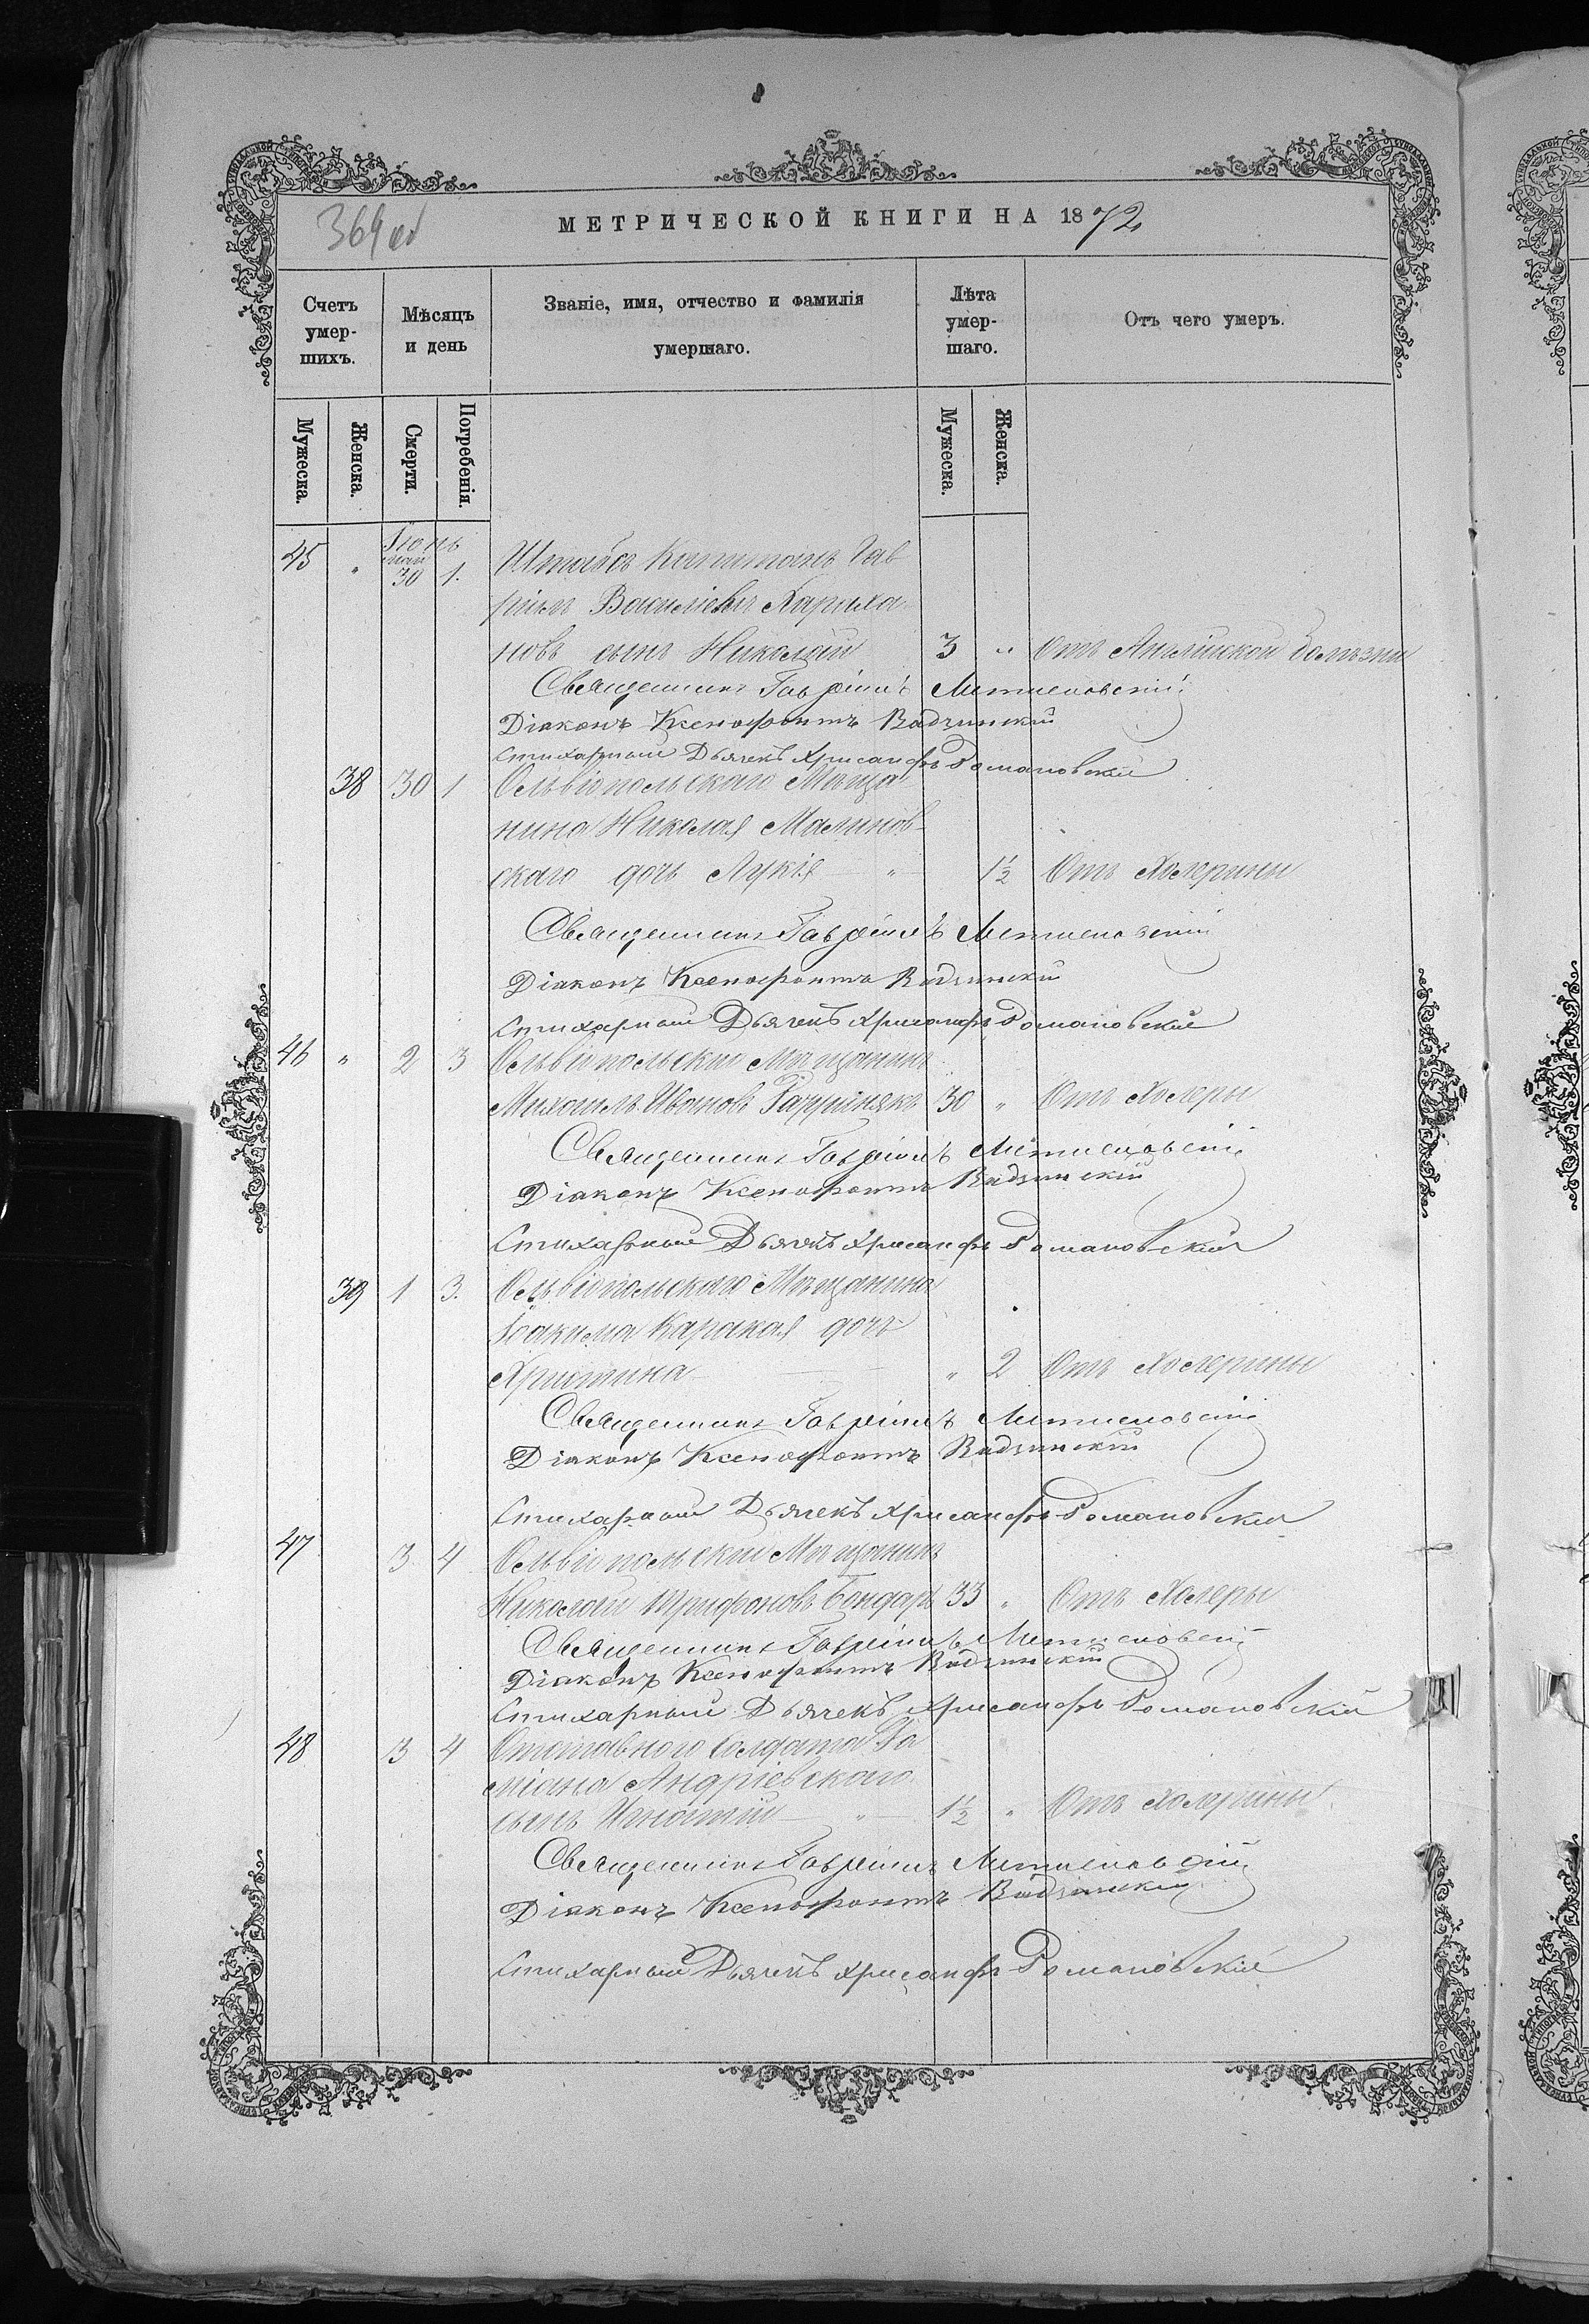 364 об
МЕТРИЧЕСКОЙ КНИГИ НА 1872
Счетъ умершихъ. Мѣсяцъ и день Званіе, имя, отчество и фамилія умершаго. Лѣта умершаго. Отъ чего умеръ.
Мужеска. Женска. Смерти. Погребенія. Мужеска. Женска.
Іюнь
45 " май 30 1. Штабсъ Капитанъ Гав
ріилъ Василіевъ
новъ сынъ Николай 3 " Отъ Англійской болѣзни
Священникъ Гавріилъ
Діаконъ Ксенофонтъ Вадзинскій
Стихарный Дьячекъ Хрисанфъ Романовскій
38 30 1 Ольвіопольскаго Мѣща
нина Николая Малинов-
скаго дочь Лукія " 1½ Отъ Холерины
Священникъ Гавріилъ
Діаконъ Ксенофонтъ Вадзинскій
Стихарный Дьячекъ Хрисанфъ Романовскій
46 " 2 3 Ольвіопольскій Мѣщанинъ
Михаилъ Ивановъ 30 " Отъ Холеры
Священникъ Гавріилъ
Діаконъ Ксенофонтъ Вадзинскій
Стихарный Дьячекъ Хрисанфъ Романовскій
39 1 3. Ольвіопольскаго Мѣщанина
Іоакима Каракая дочь
Христина " 2 Отъ Холерины
Священникъ Гавріилъ
Діаконъ Ксенофонтъ Вадзинскій
Стихарный Дьячекъ Хрисанфъ Романовскій
47 3 4 Ольвіопольскій Мѣщанинъ
Николай Трифоновъ Бондарь 33 " Отъ Холеры
Священникъ Гавріилъ
Діаконъ Ксенофонтъ Вадзинскій
Стихарный Дьячекъ Хрисанфъ Романовскій
48 3 4 Отставного Солдата Да
міана Андріевскаго
сынъ Игнатій " 1½ " Отъ Холерины
Священникъ Гавріилъ
Діаконъ Ксенофонтъ Вадзинскій
Стихарный Дьячекъ Хрисанфъ Романовскій